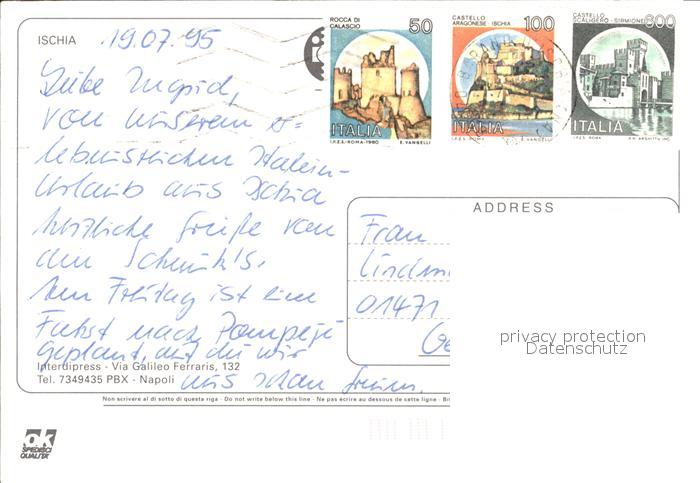 ISCHIA
19.07.95
Liebe Ingrid,
von unserem er-
lebnisreichen Italien-
Urlaub aus Ischia
herzliche Grüße von
den Schmidt's.
Am Freitag ist eine
Fahrt nach Pompeji
geplant, auf die wir
uns schon freuen.
Interdipress - Via Galileo Ferraris, 132
Tel. 7349435 PBX - Napoli
ROCCA DI CALASCIO
50
ITALIA
I.P.Z.S.-ROMA-1980 E. VANGELLI
CASTELLO ARAGONESE - ISCHIA
100
ITALIA
I.P.Z.S. ROMA E. VANGELLI
CASTELLO SCALIGERO - SIRMIONE
600
ITALIA
I.P.Z.S. ROMA
ADDRESS
Frau
01471
privacy protection
Datenschutz
Non scrivere al di sotto di questa riga - Do not write below this line - Ne pas écrire au dessous de cette ligne - Bit
ok
SPEDISCI
QUALITÀ